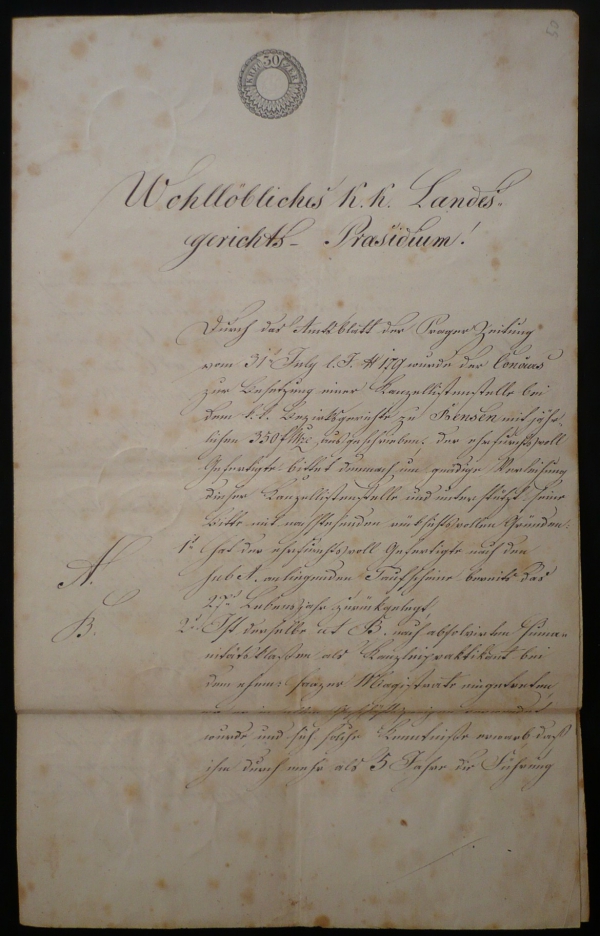 50
30
Wohllöbliches k. k. Landes-
gerichts- Praesidium!
Durch das Amtsblatt der Prager Zeitung
vom 31t July l. J. № 179 wurde der Concurs
zur Besetzung einer Kanzellistenstelle bei
dem k. k. Bezirksgerichte zu Bensen mit jähr-
lichen 350 f ausgeschrieben. Der ehrfurchtsvoll
Gefertigte bittet demnach um gnädige Verleihung
dieser Kanzellistenstelle und unterstützt seine
Bitte mit nachstehenden rücksichtsvollen Gründen:
1t hat der ehrfurchtsvoll Gefertigte nach dem
A.
sub A. anliegenden Taufscheine bereits das
Lebensjahr zurückgelegt,
B.
2t Ist derselbe at B. nach absolvirten Huma-
nitätsklassen als Kanzleipraktikant bei
dem ehem. Saazer Magistrate eingetreten
wo er in allen verwendet
wurde, und sich solche Kenntnisse erwarb, daß
ihm durch mehr als 5 Jahre die Führung